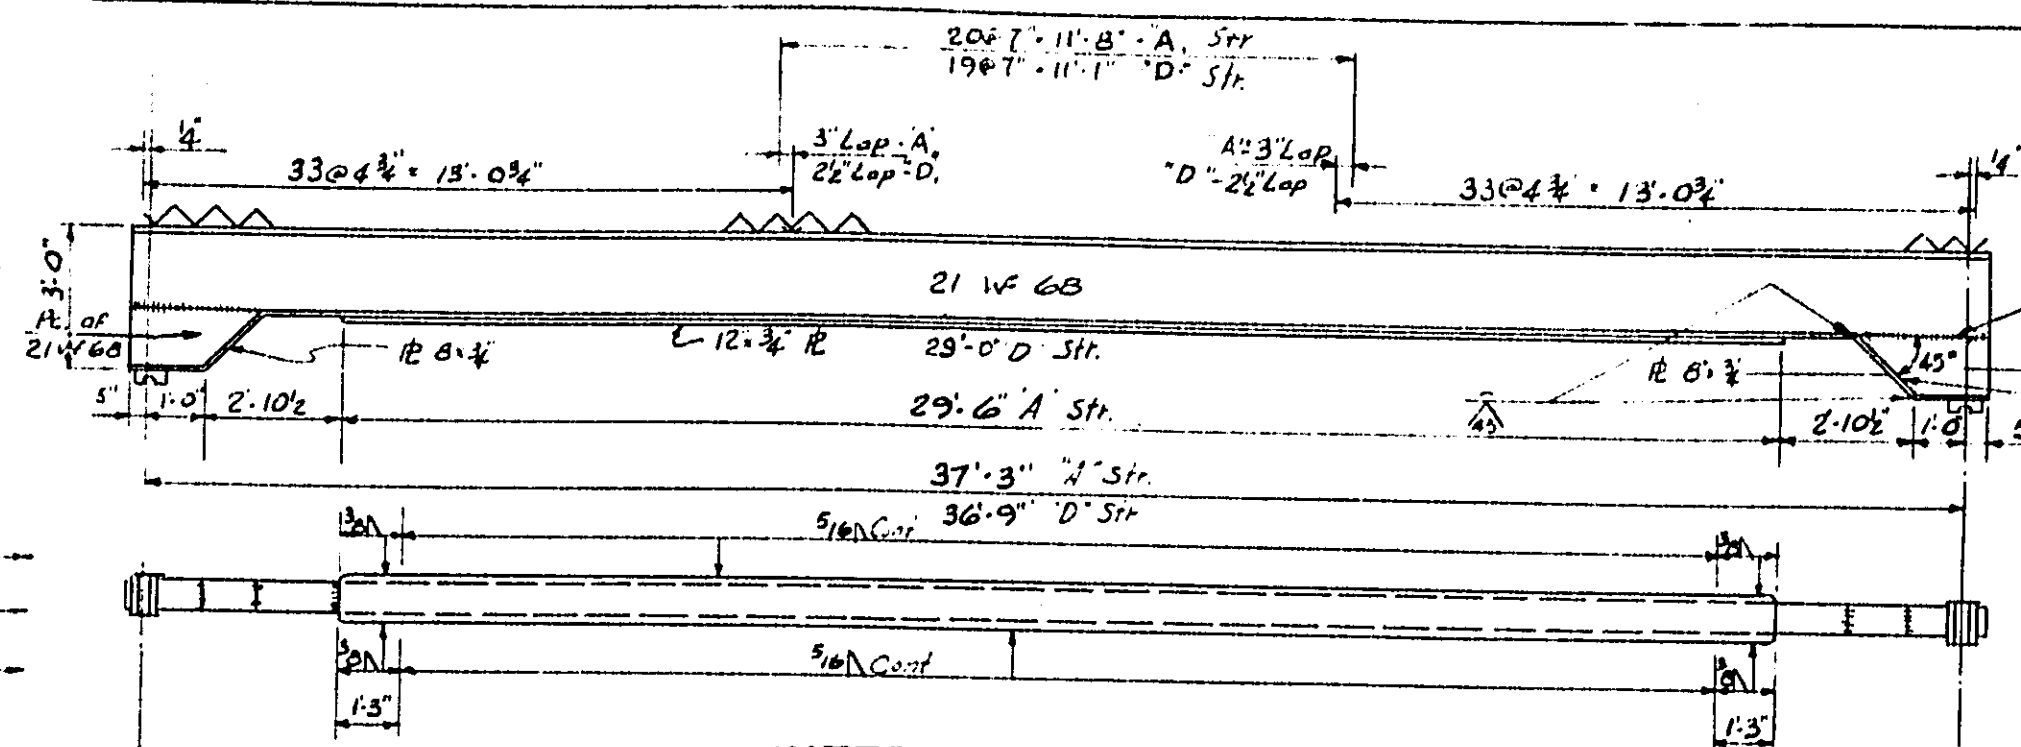 20@7"·11'·8"·"A" Str
19@7"·11'·1" "D" Str.
1/4"
3" Lap·"A"
2 1/2" Lap·"D"
"A"·3" Lap
"D"·2 1/2" Lap
1/4"
33@4 3/4" = 13'·0 3/4"
33@4 3/4" = 13'·0 3/4"
3'·0"
21 WF 68
Pc of
21 WF 68
PL 8 x 3/4
12 x 3/4 PL
29'-0" "D" Str.
PL 8 x 3/4
45°
5"
1'·0"
2'·10 1/2
29'·6" "A" Str.
45
2'·10 1/2"
1'·0"
5
37'·3" "A" Str.
36'·9" "D" Str
3/8
5/16 Cont
3/8
3/8
5/16 Cont
3/8
1'·3"
1'·3"